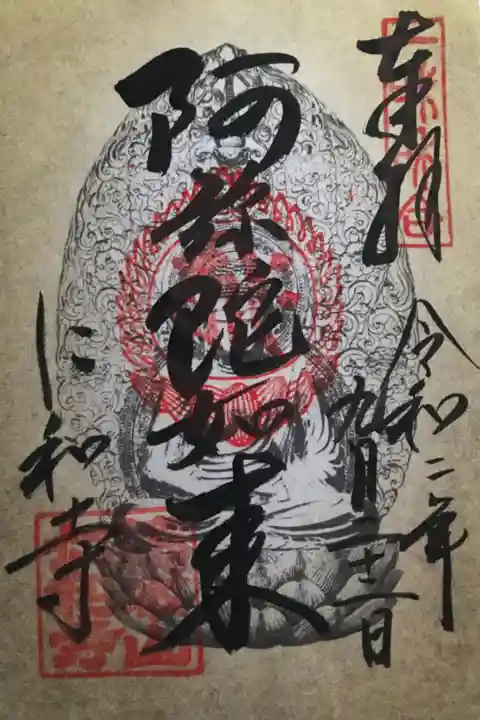 奉拝
令和二年
九月二十二日
阿弥陀如来
仁和寺